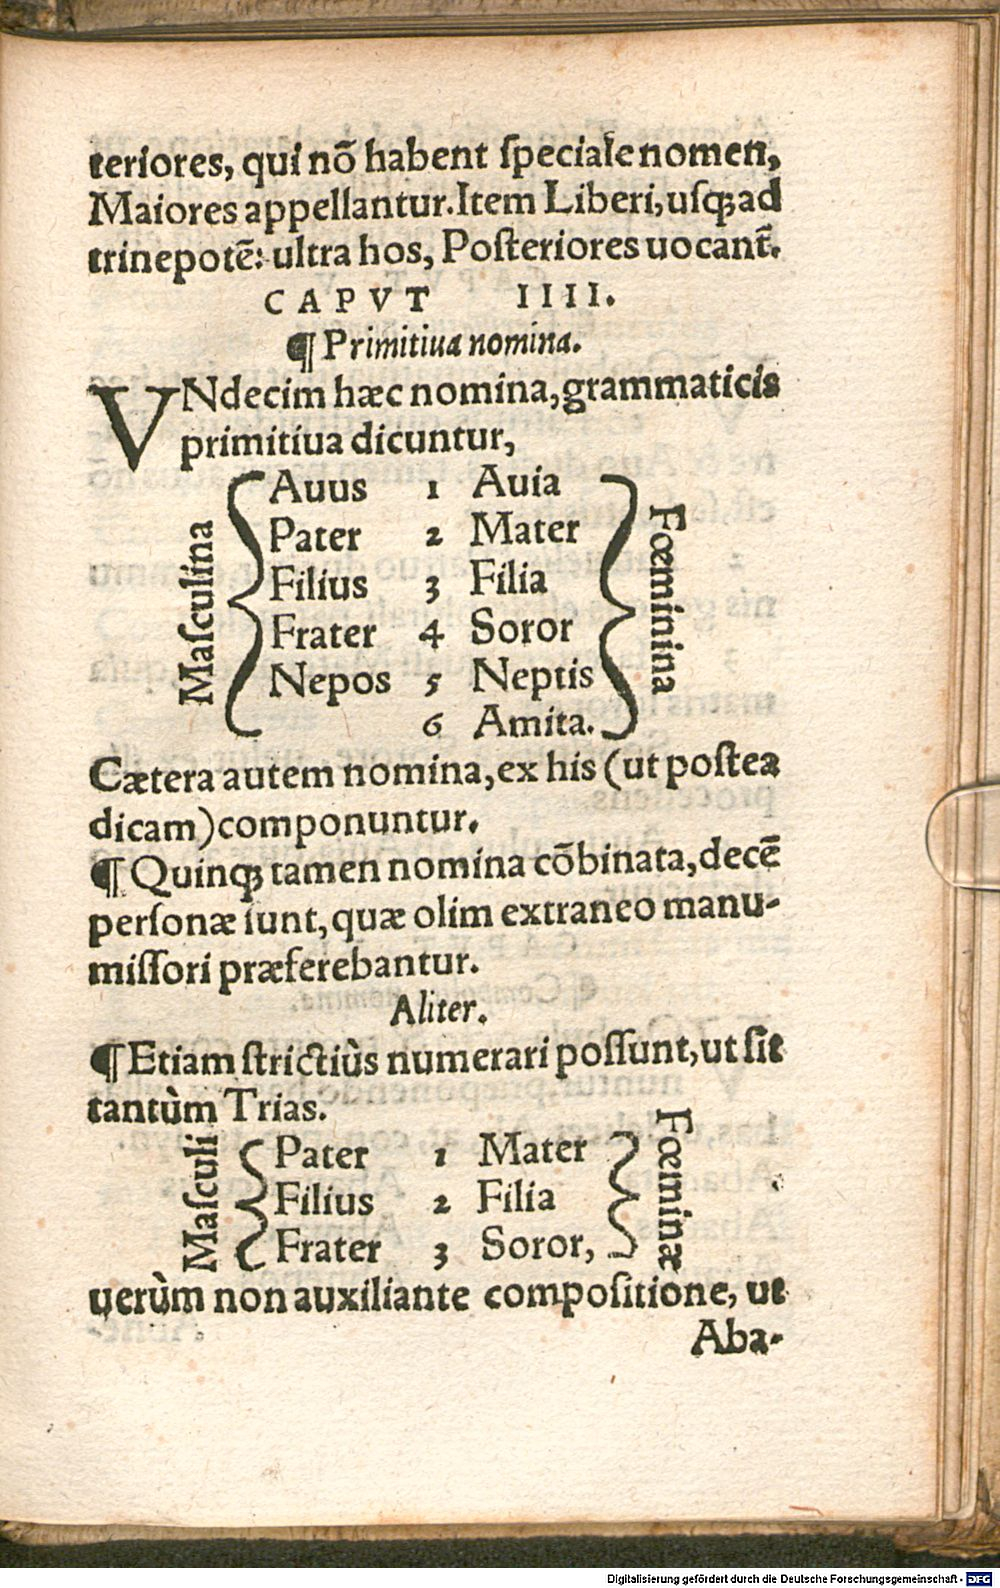 teriores, qui nō habent ſpeciale nomen,
Maiores appellantur. Item Liberi, uſq́; ad
trinepotē: ultra hos, Poſteriores uocant̃.
CAPVT IIII.
¶ Primitiua nomina.
VNdecim hæc nomina, grammaticis
primitiua dicuntur,
Maſculina
Auus 1 Auia
Pater 2 Mater
Filius 3 Filia
Frater 4 Soror
Nepos 5 Neptis
6 Amita.
Fœminina
Cætera autem nomina, ex his (ut poſtea
dicam) componuntur.
¶ Quinq́; tamen nomina cōbinata, decē
perſonæ ſunt, quæ olim extraneo manu-
miſſori præferebantur.
Aliter.
¶ Etiam ſtrictiùs numerari poſſunt, ut ſit
tantùm Trias.
Maſculi
Pater 1 Mater
Filius 2 Filia
Frater 3 Soror,
Fœminæ
uerùm non auxiliante compoſitione, ut
Aba-
Digitalisierung gefördert durch die Deutsche Forschungsgemeinschaft - DFG